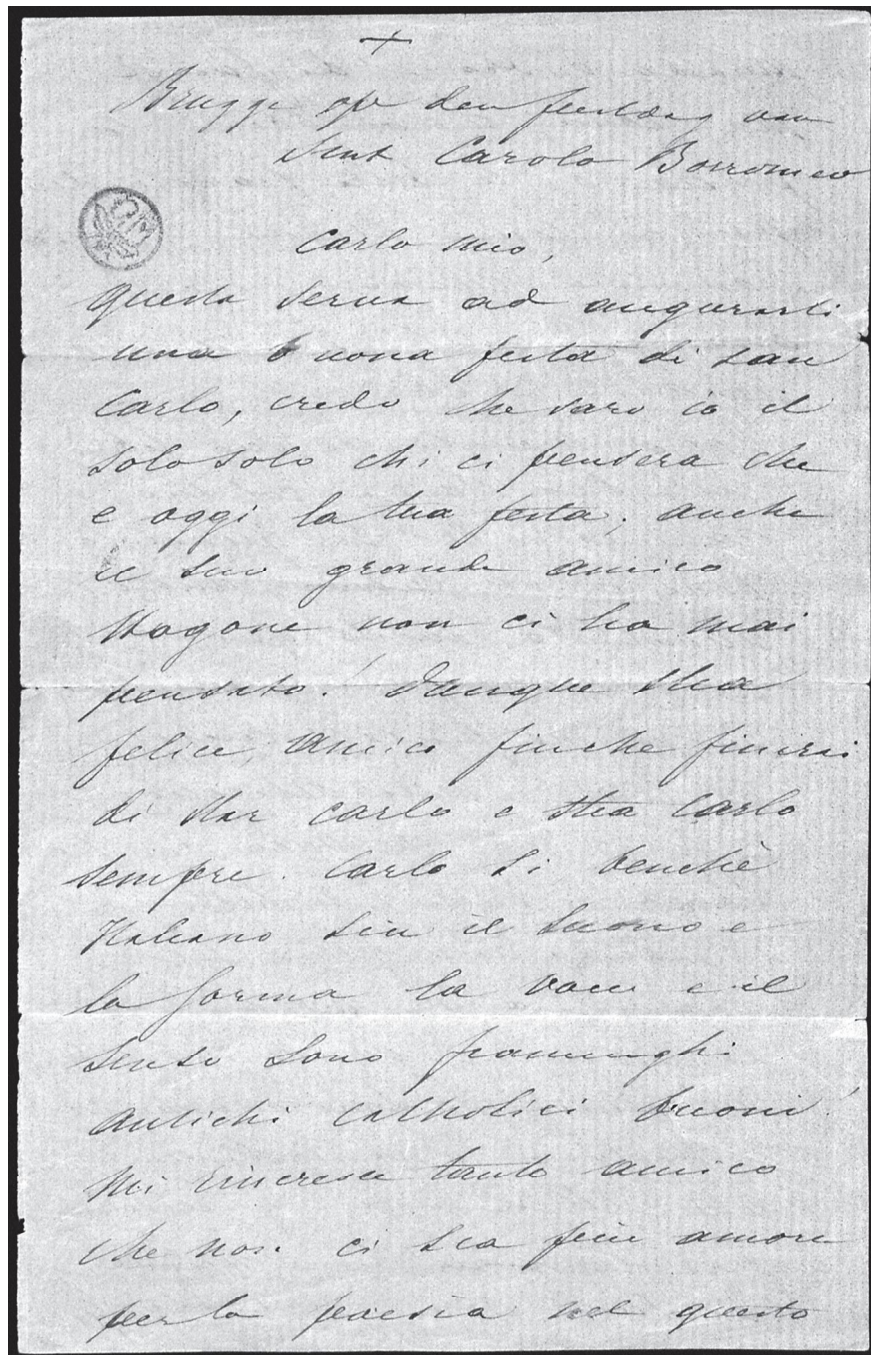 +
Brugge op den feestdag van
Sint Carolo Borromeo
Carlo mio,
questa serva ad augurarti
una buona festa di san
Carlo, credo che saro io il
solo solo chi ci pensera che
e oggi la tua festa, anche
il suo grande amico
Hogone non ci ha mai
pensato! Dunque stia
felice, amico finche finirai
di star carlo e stia Carlo
sempre. Carlo si benchè
Italiano sia il suono e
la forma la voce e il
senso sono fiamminghi
antichi catholici buoni!
Mi rincresce tanto amico
che non ci sia piu amore
per la poesia nel questo